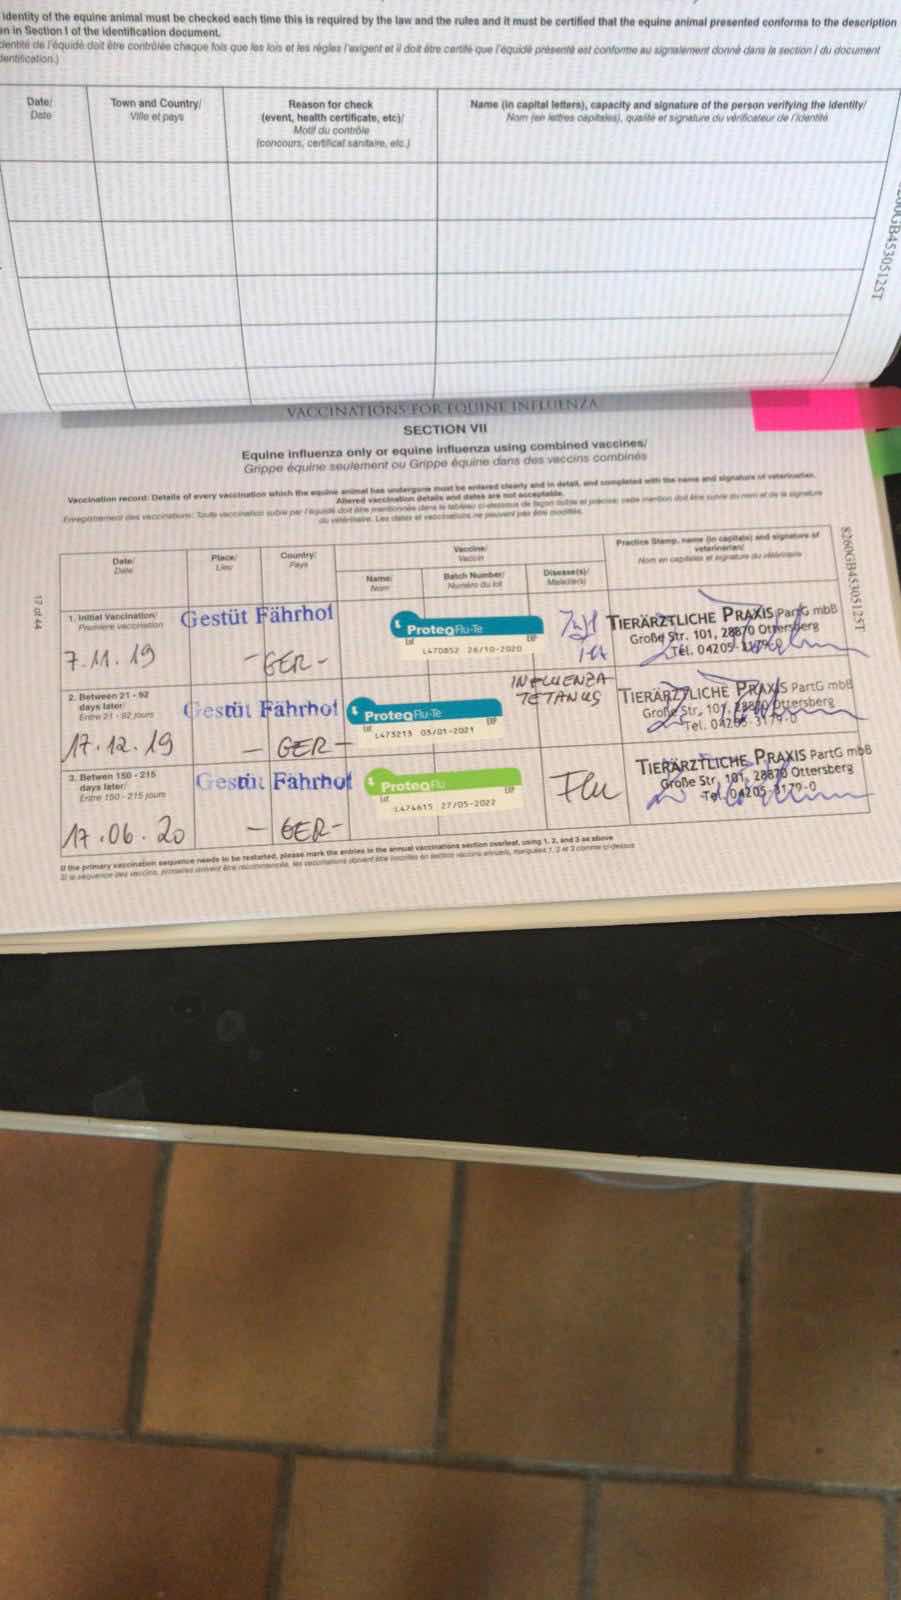 identity of the equine animal must be checked each time this is required by the law and the rules and it must be certified that the equine animal presented conforms to the description
en in Section I of the identification document.
dentité de l'équidé doit être contrôlée chaque fois que les lois et les règles l'exigent et il doit être certifié que l'équidé présenté est conforme au signalement donné dans la section I du document
dentification.)
Date/ Town and Country/ Reason for check Name (in capital letters), capacity and signature of the person verifying the identity/
Date Ville et pays (event, health certificate, etc)/ Nom (en lettres capitales), qualité et signature du vérificateur de l'identité
Motif du contrôle
(concours, certificat sanitaire, etc.)
8260GB45305125T
VACCINATIONS FOR EQUINE INFLUENZA
SECTION VII
Equine influenza only or equine influenza using combined vaccines/
Grippe équine seulement ou Grippe équine dans des vaccins combinés
Vaccination record: Details of every vaccination which the equine animal has undergone must be entered clearly and in detail, and completed with the name and signature of veterinarian.
Altered vaccination details and dates are not acceptable.
Enregistrement des vaccinations: Toute vaccination subie par l'équidé doit être mentionnée dans le tableau ci-dessous de façon lisible et précise; cette mention doit être suivie du nom et de la signature
du vétérinaire. Les dates et vaccinations ne peuvent pas être modifiés.
Date/ Place/ Country/ Vaccine/ Practice Stamp, name (in capitals) and signature of
Date Lieu Pays Vaccin veterinarian/
Nom en capitales et signature du vétérinaire
Name/ Batch Number/ Disease(s)/
Nom Numéro du lot Maladie(s)
17 of 44
8260GB45305125T
1. Initial Vaccination/ Gestüt Fährhof
Première vaccination
7.11.19 -GER-
ProteqFlu-Te
Lot EXP
L470852 26/10-2020
TIERÄRZTLICHE PRAXIS PartG mbB
Große Str. 101, 28870 Ottersberg
Tel. 04205-3179-0
2. Between 21 - 92
days later/
Entre 21 - 92 jours
Gestüt Fährhof
17.12.19 - GER -
ProteqFlu-Te
Lot EXP
L473213 03/01-2021
INFLUENZA
TETANUS
TIERÄRZTLICHE PRAXIS PartG mbB
Große Str. 101, 28870 Ottersberg
Tel. 04205-3179-0
3. Betwen 150 - 215
days later/
Entre 150 - 215 jours
Gestüt Fährhof
17.06.20 - GER-
ProteqFlu
Lot EXP
L474615 27/05-2022
Flu
TIERÄRZTLICHE PRAXIS PartG mbB
Große Str. 101, 28870 Ottersberg
Tel. 04205-3179-0
If the primary vaccination sequence needs to be restarted, please mark the entries in the annual vaccinations section overleaf, using 1, 2, and 3 as above